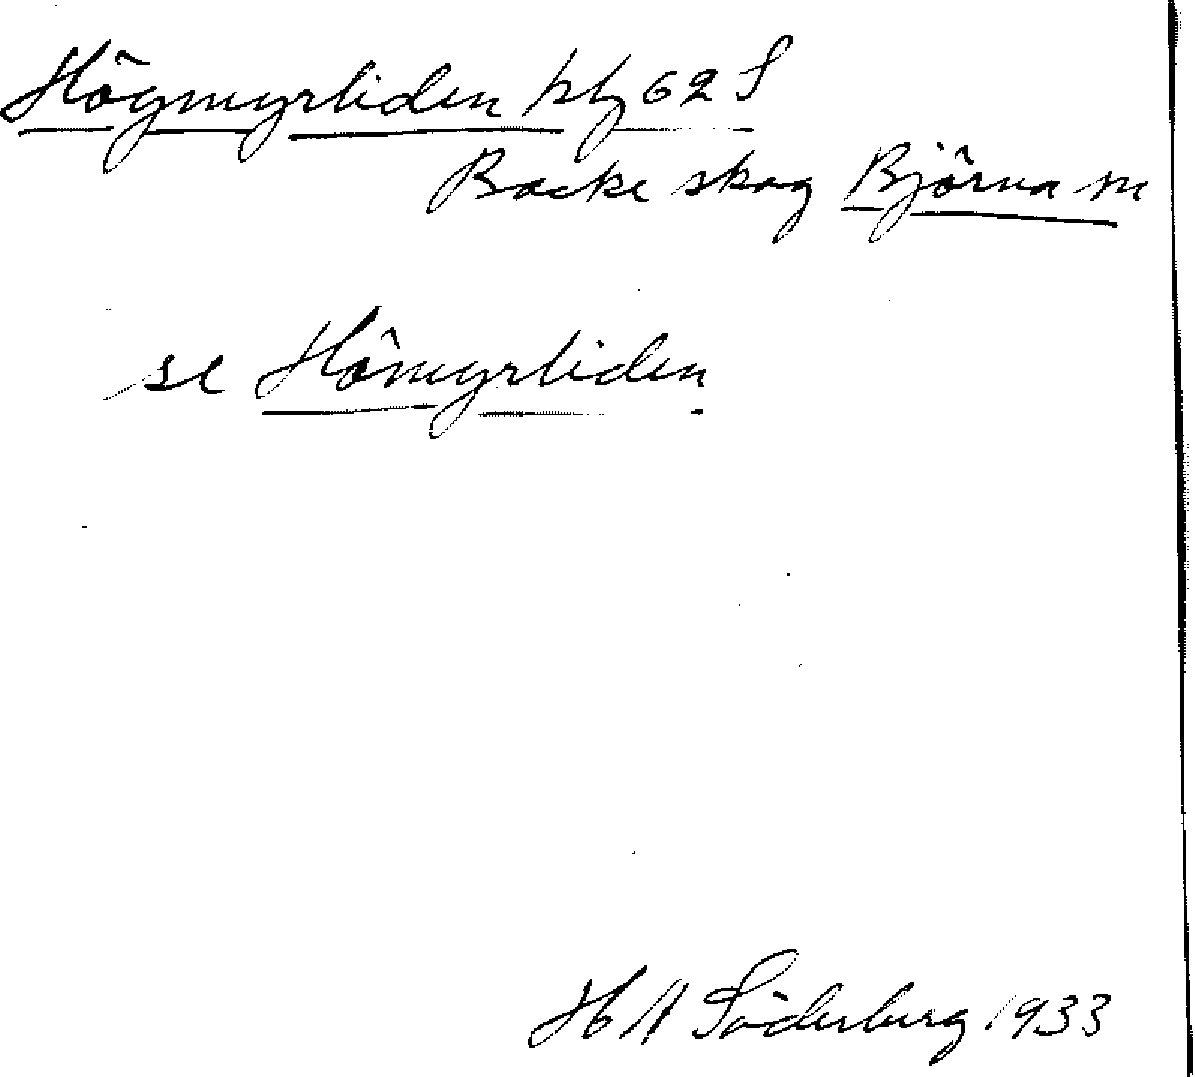 Högmyrliden kbg 62 S
Backe skog Björna sn
se Hömyrliden
H A Söderberg 1933